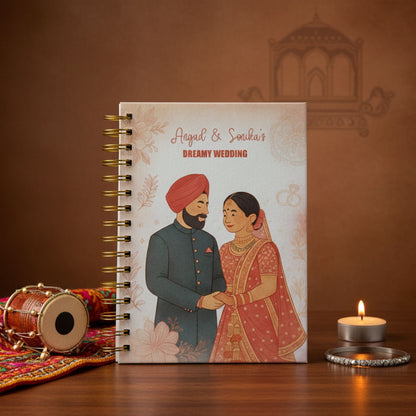 Angad & Sonika's
DREAMY WEDDING